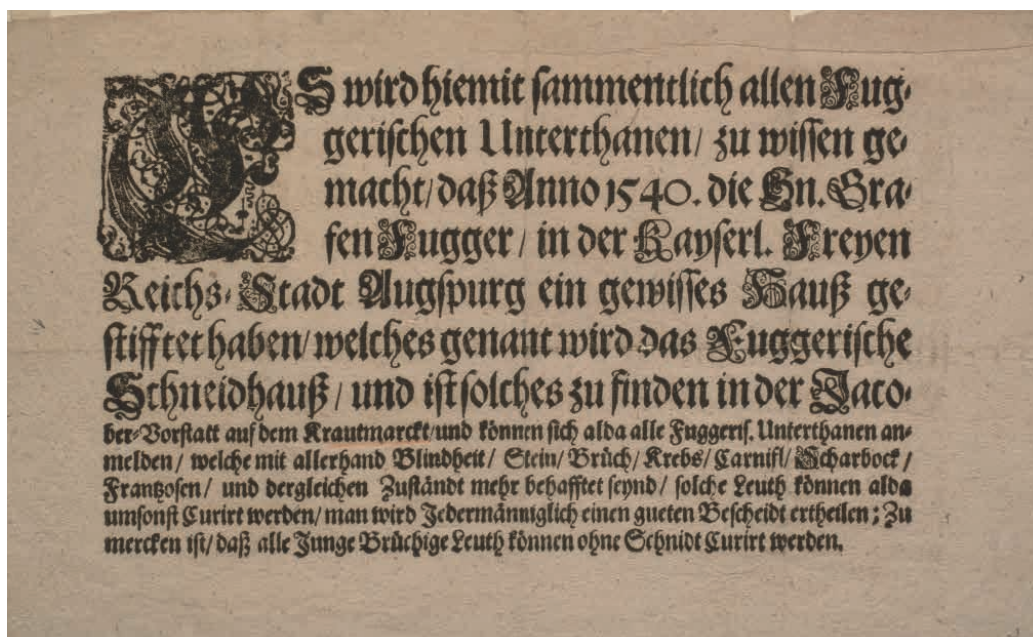 ES wird hiemit sammentlich allen Fug-
gerischen Unterthanen/ zu wissen ge-
macht/ daß Anno 1540. die Hn. Gra-
fen Fugger/ in der Kayserl. Freyen
Reichs-Stadt Augspurg ein gewisses Hauß ge-
stifftet haben/ welches genant wird das Fuggerische
Schneidhauß/ und ist solches zu finden in der Jaco-
ber-Vorstatt auf dem Krautmarckt/ und können sich alda alle Fuggeris. Unterthanen an-
melden/ welche mit allerhand Blindheit/ Stein/ Brüch/ Krebs/ Carnifl/ Scharbock/
Frantzosen/ und dergleichen Zuständt mehr behafftet seynd/ solche Leuth können alda
umsonst Curirt werden/ man wird Jedermänniglich einen gueten Bescheidt ertheilen; Zu
mercken ist/ daß alle Junge Brüchige Leuth können ohne Schnidt Curirt werden.